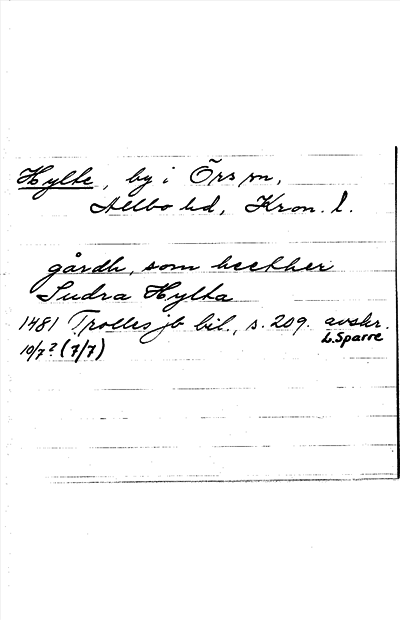 Hylte, by i Örs sn,
Allbo hd, Kron. l.
gårdh, som heether
Sudra Hylta
1481 Trolles jb bil., s. 209. avskr.
10/7? (7/7) L. Sparre